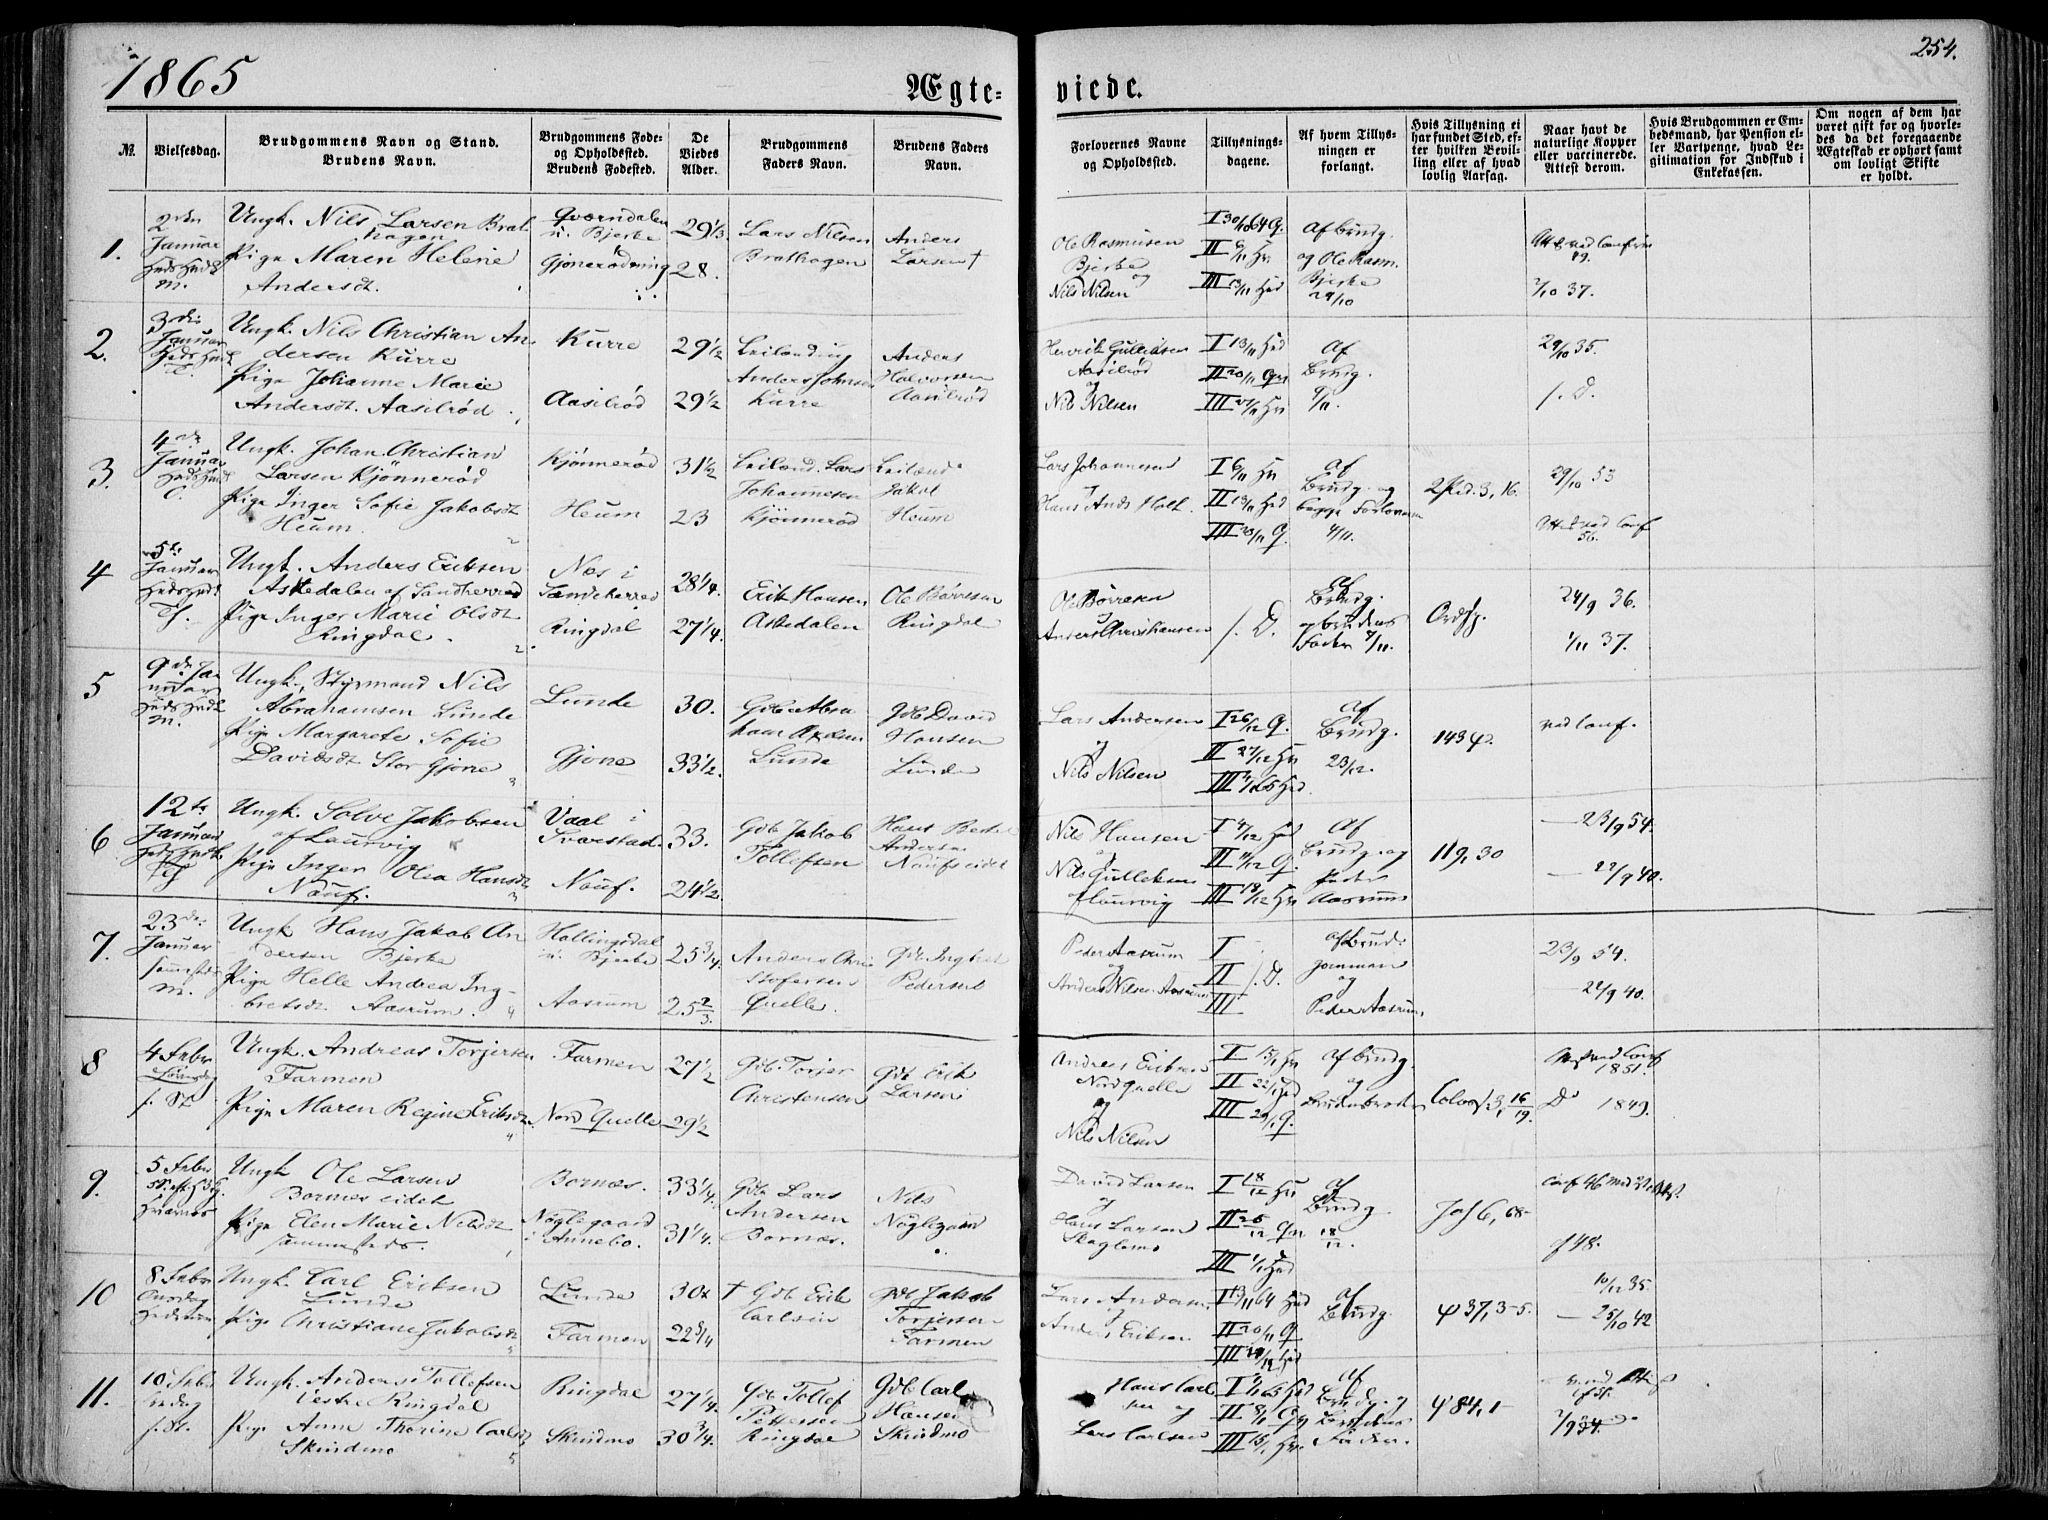 1865
Ægte-
viede.
254.
№.
Vielsesdag.
Brudgommens Navn og Stand.
Brudens Navn.
Brudgommens Føde-
og Opholdssted.
Brudens Fødested.
De
Viedes
Alder.
Brudgommens
Faders Navn.
Brudens Faders
Navn.
Forlovernes Navne
og Opholdssted.
Tillysnings-
dagene.
Af hvem Tillys-
ningen er
forlangt.
Hvis Tillysning ei
har fundet Sted, ef-
ter hvilken Bevil-
ling eller af hvad
lovlig Aarsag.
Naar havt de
naturlige Kopper
eller vaccinerede.
Attest derom.
Hvis Brudgommen er Em-
bedsmand, har Pension el-
ler Vartpenge, hvad Le-
gitimation for Indskud i
Enkekassen.
Om nogen af dem har
været gift før og hvorle-
des da det foregaaende
Ægteskab er ophørt samt
om lovligt Skifte
er holdt.
1.
2den
Januar
Ungk. Nils Larsen Brat
hagen
Pige Maren Helene
Andersdt.
Qværndalen
u. Bjerke
Gjønerødning
29 1/3
28.
Lars Nilsen
Brathagen
Anders
Larsen †
Ole Rasmusen
Bjerke
og
Nils Nilsen
I 30/10 64 Q.
II 6/11 Hv
III 13/11 Hed
Af Brudg.
og Ole Rasm.
Bjerke
29/10
7/10 37.
2.
3die
Januar
Ungk. Nils Christian An
dersen Kurre
Pige Johanne Marie
Andersdt. Aasilrød
Kurre
Aasilrød
29 1/2
29 1/2
Leilænding
Anders Johnsen
Kurre
Anders
Halvorsen
Aasilrød
Henrik Gulliksen
Aasilrød
og
Nils Nilsen
I 13/11 Hed
II 20/11 Qv
III 27/11 Hv
Af
Brudg.
9/11.
29/10 35.
f. D.
3.
4de
Januar
Ungk. Johan Christian
Larsen Kjønnerød
Pige Inger Sofie Jakobsdt
Heum
Kjønnerød
Heum
31 1/2
23
Leilænd. Lars
Johannesen
Kjønnerød
Leilænd.
Jakob
Heum
Lars Johannesen
Hans Ands Holt.
I 6/11 Hv
II 13/11 Hed
III 20/11 Q.
af
Brudg. og
begge Forlovere
4/11.
29/10 53
56.
4
5te
Januar
Ungk. Anders Eriksen
Askedalen af Sandherred
Pige Inger Marie Olsdt
Ringdal
Nes i
Sandeherred
Ringdal
28 1/4.
27 1/4
Erik Hansen
Askedalen
Ole Børresen
Ringdal
Ole Børresen
Anders Christiansen
f. D.
af
Brudg.
og Brudens
Fader 9/11.
24/9 36.
1/11 37.
5
9de Ja
nuar
Ungk. Styrmand Nils
Abrahamsen Lunde
Pige Margarete Sofie
Davidsdt Stor Gjøne
Lunde
Gjøne
30.
33 1/2.
Gdb Abra
ham
Lunde
Gdb David
Hansen
Lunde
Lars Andersen
og
Nils Nilsen
I 26/12 Q.
II 27/12 Hv
III 1/1 65 Hed.
af
Brudg.
23/12.
ved Conf.
6
12te
Januar
Ungk. Solve Jakobsen
af Laurvig
Pige Inger Olea Hansdt
Nauf.
Vaal i
Svarstad
Nauf.
33.
24 1/2
Gdb Jakob
Tollefsen
Hans
Andersen
Naufseidet
Nils Hansen
og
Nils Gulleksen
af Laurvig
I 4/12 Hed
II 11/12 Q.
III 18/12 Hv
Af
Brudg. og
Peder
Aasrum
119, 30
23/9 54.
22/9 40.
7.
23de
Januar
Ungk Hans Jakob An
dersen Bjerke
Pige Helle Andrea Ing-
bretsdt Aasrum.
Hallingsdal
u. Bjerke
Aasrum
25 3/4.
25 2/3.
Anders Chri
stofersen
Quelle
Pedersen
Peder Aasrum
og
Anders Nilsen Aasrum
I
II f. D.
III
af Brud-
gommen
og
Peder Aasrum
23/9 54.
22/9 40.
8
4 Febr
Løverdag
Ungk. Andreas Torjersen
Farmen
Pige Maren Regine Eriksdt.
Farmen
Nord Quelle
27 1/2
29 1/2
Gdb. Torjer
Christensen
Gdb Erik
Larsen
Andreas Eriksen
Nord Quelle
og
Nils Nilsen
I 15/1 Hv
II 22/1 Hed
III 29/1 Q.
af Brudg.
og
Brudens broder
1851.
Do 1849.
9.
5 Febr
Ungk Ole Larsen
Bornes eidet
Pige Elen Marie Nilsdt
sammesteds.
Bornes.
Nøglegaard
i Annebo.
33 1/4.
31 1/4.
Gdb Lars
Andersen
Bornes.
Nils
Nøglegaard
David Larsen
og
Hans Larsen
Skoglemo
I 18/12 Hv
II 25/12 Qv
III 1/1 Hed
af
Brudg.
18/12.
10
8 Febr
Onsdag
Hedrum
Ungk. Carl Eriksen
Lunde
Pige Christiane Jakobsdt
Lunde
Farmen
30
22 3/4
† Gdb Erik
Carlsen
Gdb Jakob
Torjersen
Farmen
Lars Andersen
og
Anders Eriksen
I 13/11 64 Hed
II 20/11 Q
af
Brudg.
10/12 35.
25/10 42
11.
10 Febr
Ungk. Anders Tollefsen
Vestre Ringdal
Pige Anne Thorine Carlsdt
Skindmo
Ringdal
Skindmo
27 1/4
30 3/4.
Gdb Tollef
Pettersen
Ringdal
Gdb Carl
Hansen
Skindmo
Hans Carl
sen og
Lars Carlsen
I 1/1 65 Hed
II 8/1 Q
III 15/1 Hv
af
Brudg. og
Brudens
Fader.